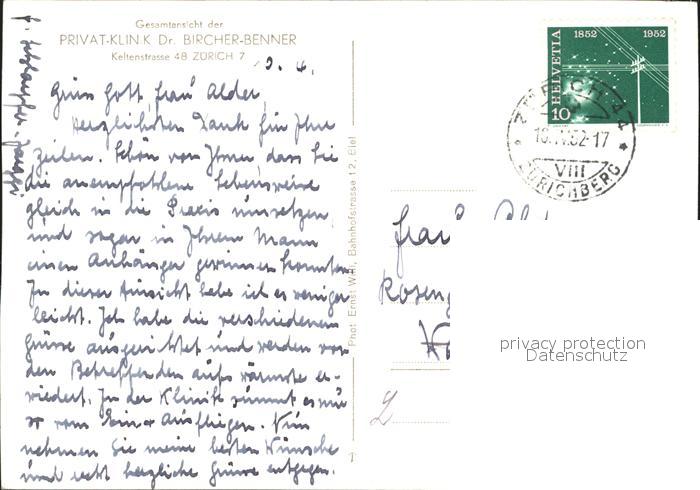 Gesamtansicht der
PRIVAT-KLINIK Dr. BIRCHER-BENNER
Keltenstrasse 48 ZÜRICH 7
Grüss Gott, Frau Alder,
Herzlichsten Dank für Ihre
Zeilen. Schön von Ihnen, dass Sie
die anempfohlene Lebensweise
gleich in die Praxis umsetzen
und sogar in Ihrem Mann
einen Anhänger gewinnen konnten.
In dieser Hinsicht habe ich es weniger
leicht. Ich habe die verschiedenen
Grüsse ausgerichtet und werden von
den Betreffenden aufs wärmste er-
wiedert. In der Klinik summt es nur
so vom Ein- + Ausfliegen. Nun
nehmen Sie meine besten Wünsche
und recht herzliche Grüsse entgegen.
Phot. Ernst Bahnhofstrasse 12,
HELVETIA
1852 1952
10
ZÜRICH 44
VIII
ZÜRICHBERG
Frau
privacy protection
Datenschutz